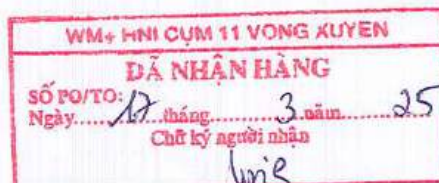 WM+ HNI CỤM 11 VONG XUYEN
ĐÃ NHẬN HÀNG
SỐ PO/TO:
Ngày 17 tháng 3 năm 25
Chữ ký người nhận